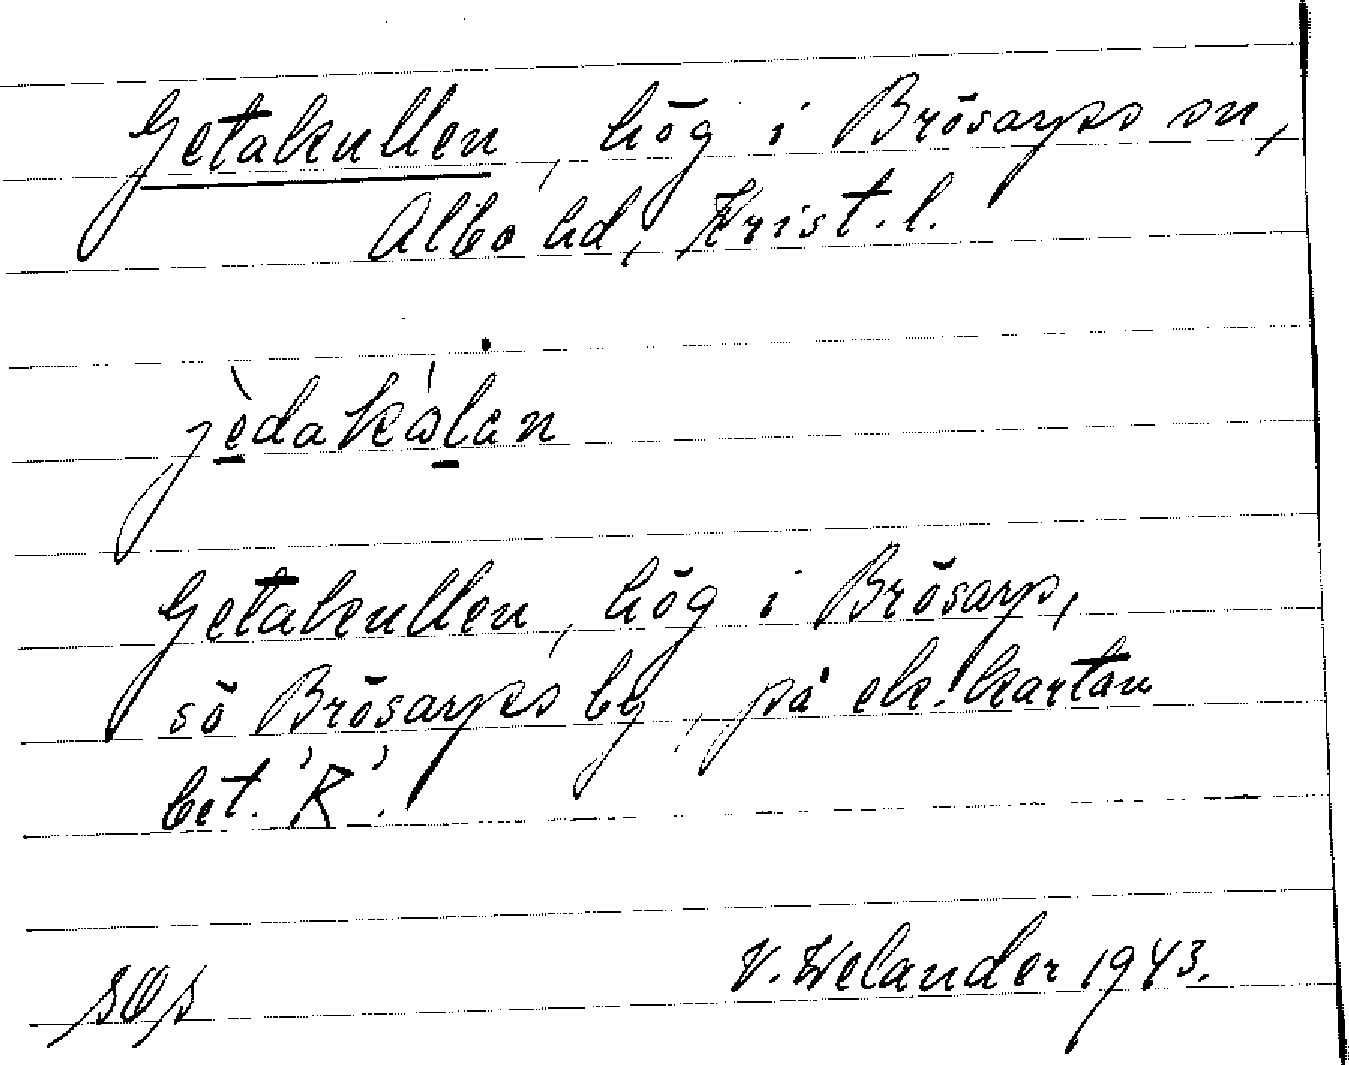 Getakullen, hög i Brösarps sn,
Albo hd, Krist. l.
jèdakɷ́lan
Getakullen, hög i Brösarp,
sö Brösarps by, på ek. kartan
bet. 'R'.
V. Welander 1943.